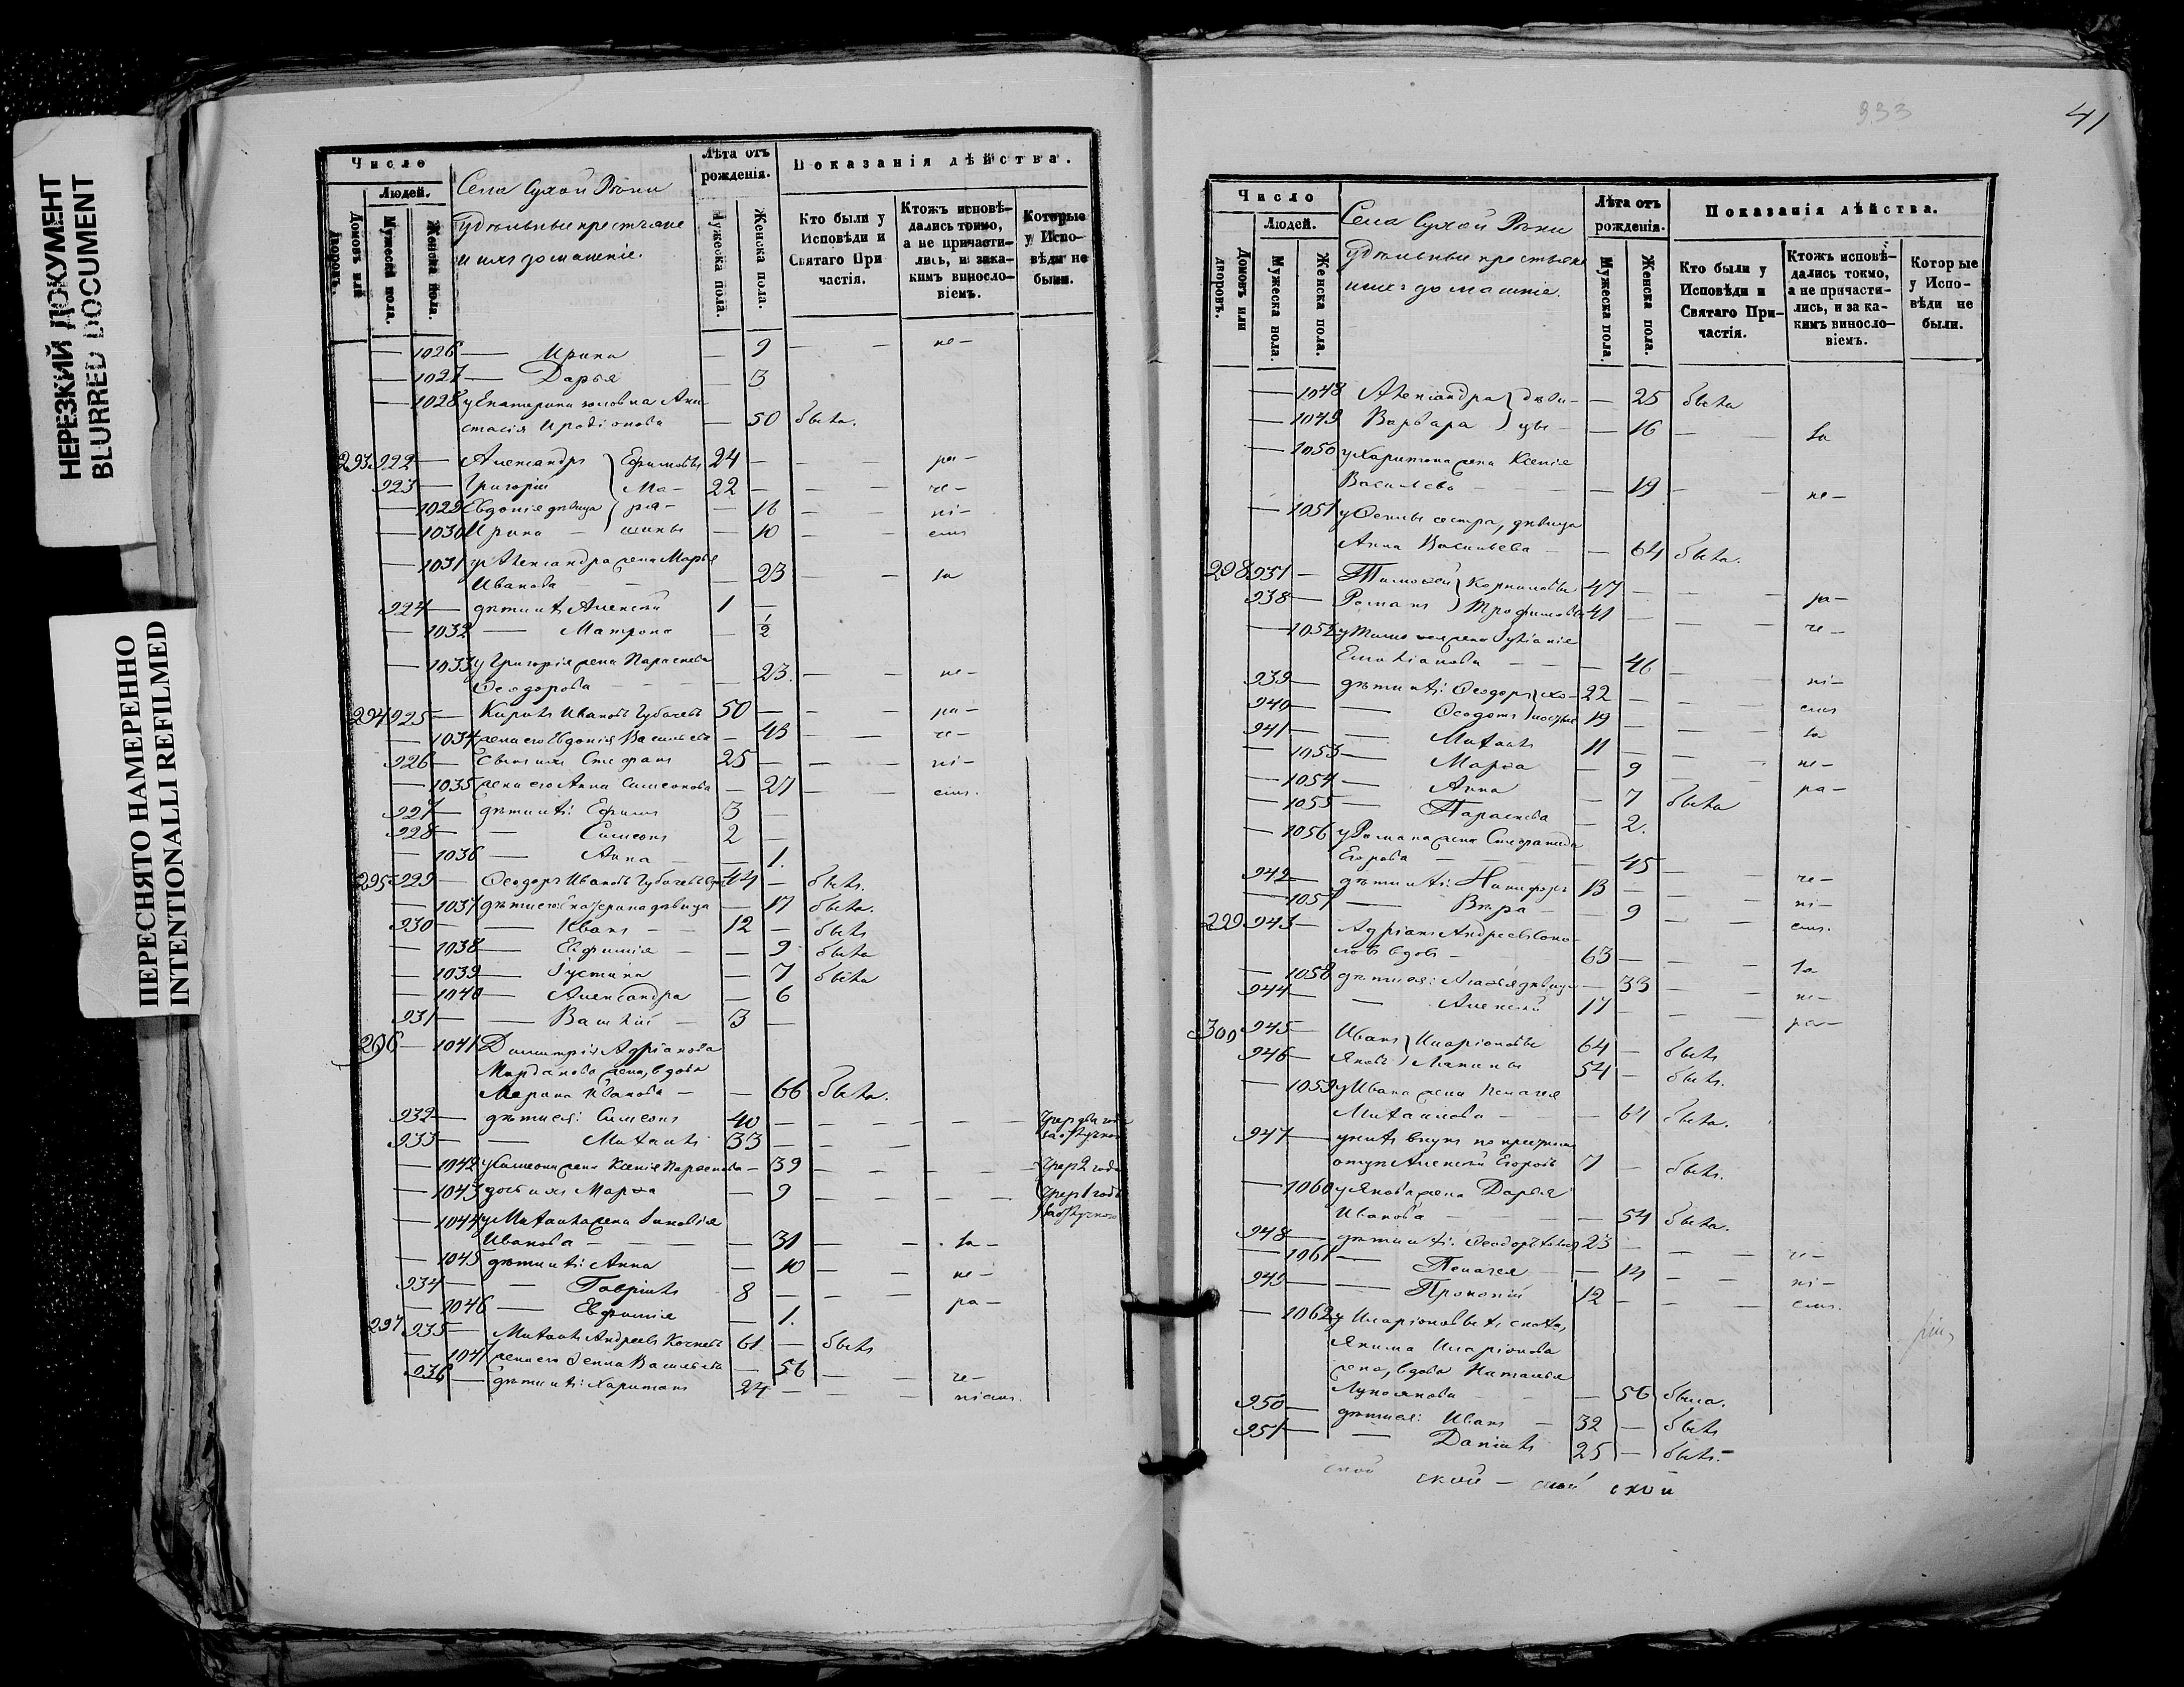 НЕРЕЗКИЙ ДОКУМЕНТ
BLURRED DOCUMENT
ПЕРЕСНЯТО НАМЕРЕННО
INTENTIONALLI REFILMED
Число
Людей.
Домовъ или дворовъ.
Мужеска пола.
Женска пола.
Села Сухой Рѣчки
удѣльные крестьяне
и ихъ домашніе.
Лѣта отъ рожденія.
Мужеска пола.
Женска пола.
Показанія дѣйства.
Кто были у Исповѣди и Святаго При частія.
Ктожъ исповѣ- дались токмо, а не причасти- лись, и зака- кимъ виносло- віемъ.
Которые у Испо- вѣди не были.
— 1026 — Ирина — 9 — — не —
— 1027 — Дарья — 3
— 1028 у Екатерины золовка Ана-
стасія Иродіонова — 50 была.
293 922 — Александръ Ефимовы 24 — — ра —
923 — Григорій Ма- 22 — — че —
— 1029 Евдокія дѣвица ра- — 16 — ні —
— 1030 Ирина — шины — 10 — емъ
— 1031 у Александра жена Марья
Иванова — — 23 — — за
924 — дѣти ихъ Алексѣй 1 —
— 1032 — Матрона — ½
— 1033 у Григорія жена Параскева
Ѳеодорова — — 23. — — не —
294 925 — Кирилъ Ивановъ Губачевъ 50 — — ра —
— 1034 жена его Евдокія Васильева — 43 — — че —
926 — сынъ ихъ Стефанъ 25 — — ні —
— 1035 жена его Анна Симеонова — 27 — — емъ.
927 — дѣти ихъ: Ефимъ 3 —
928 — — Симеонъ 2 —
— 1036 — Анна — — 1.
295 929 — Ѳеодоръ Ивановъ Губачевъ 44 — былъ.
— 1037 дѣти его: Екатерина дѣвица — 17 была.
930 — — Иванъ — 12 — былъ
— 1038 — Евфимія — — 9 была
— 1039 — Іустина — 7 была
— 1040 — Александра — 6
931 — — Василій — 3 —
296 — 1041 Димитрія Адріанова
жена, вдова
Марина Иванова — — 66 была.
932 — дѣти ея: Симеонъ 40 — — — —
933 — — Михаилъ 33 — — —
— 1042 у Симеона жена Ксенія — 39 — — — — Чрез 2 года
— 1043 дочь ихъ Марѳа — 9 — — — — Чрез 1 годъ
— 1044 у Михаила жена Зиновія
Иванова — — — 31 — — за —
— 1045 дѣти ихъ: Анна — 10 — — не —
934 — — Гавріилъ 8 — — — ра —
— 1046 — Евфимія — 1.
297 935 — Михаилъ Андреевъ 61 — былъ
— 1047 жена его Васильева — 56 — — че —
936 — дѣти ихъ: Харитонъ 24 — — — ніемъ.
933
41
Число
Людей.
Домовъ или дворовъ.
Мужеска пола.
Женска пола.
Села Сухой Рѣчки
удѣльные крестьяне
и ихъ домашніе.
Лѣта отъ рожденія.
Мужеска пола.
Женска пола.
Показанія дѣйства.
Кто были у Исповѣди и Святаго При- частія.
Ктожъ исповѣ- дались токмо, а не причасти- лись, и за ка- кимъ винослo- віемъ.
Которые у Испо- вѣди не были.
— 1048 Александра дѣви- — 25 была
— 1049 Варвара цы — — 16 — — за
— 1050 у Харитона жена Ксенія
Васильева — — 19 — — не —
— 1051 сестра, дѣвица
Анна Васильева — — 64 была.
298 937 — Тимоѳей Корниловы 47 — — ра —
938 — Романъ Трофимовы 41 — — че —
— 1052 у Тимоѳея жена Іуліанія
Емиліанова — — 46 — — ні —
939 — дѣти ихъ: Ѳеодоръ хо- 22 — — емъ
940 — — Ѳеодотъ лостые 19 — — за
941 — — Михаилъ 11 — — не —
— 1053 — Марѳа — 9 — — ра —
— 1054 — Анна — 7 была
— 1055 — Параскева — 2.
— 1056 у Романа жена Стефанида
Егорова — — 45 — — че —
942 — дѣти ихъ: Никифоръ 13 — — ні —
— 1057 — Вѣра — — 9 — — емъ.
299 943 — Адріанъ Андреевъ Соко-
ловъ вдовъ — 63 — — за
— 1058 дѣти ея: дѣвица — 33 — — не —
944 — — Алексѣй 17 — — ра —
300 945 — Иванъ Иларіоновы 64 — былъ
946 — Яковъ Лапины 54 — былъ.
— 1059 у Ивана жена Пелагея
Михаилова — — 64 была.
947 — у нихъ внукъ
Алексѣй Егоровъ 7 — былъ.
— 1060 у Якова жена Дарья
Иванова — — 54 была.
948 — дѣти ихъ: Ѳеодоръ 23 — — че —
— 1061 — Пелагея — — 14 — — ні —
949 — — Прокопій 12 — — емъ.
— 1062 у Иларіоновыхъ сноха,
Якима Иларіонова
жена, вдова Наталья
Лукіянова — — 56 была.
950 — дѣти ея: Иванъ — 32 — былъ
951 — — Даніилъ 25 — былъ. —
ской ской — ской ской